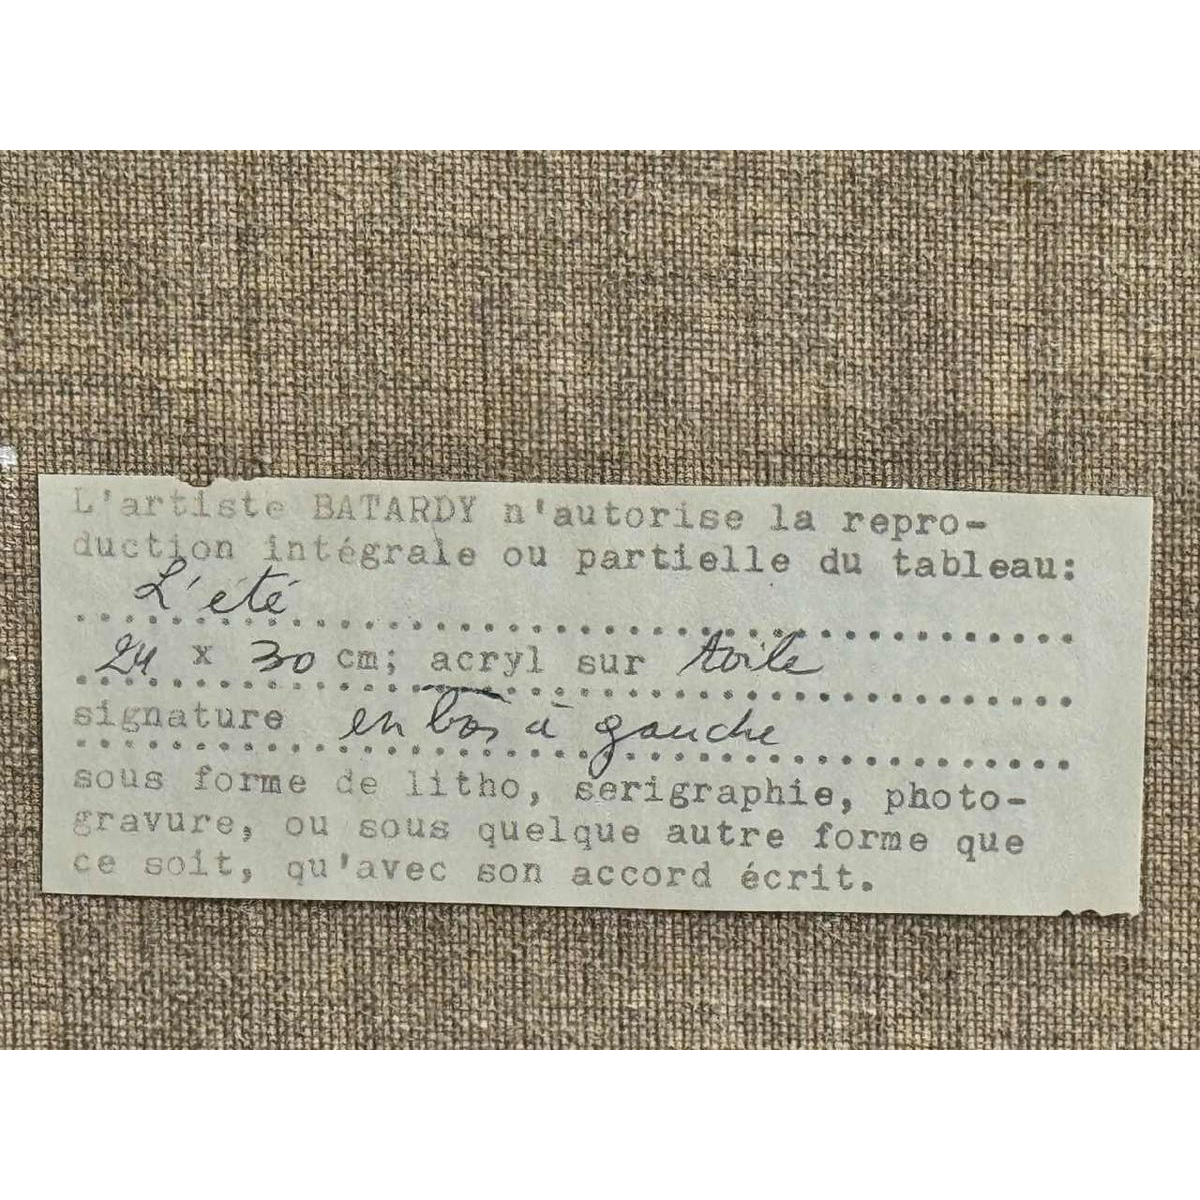 L'artiste BATARDY n'autorise la repro-
duction intégrale ou partielle du tableau:
L'été
24 x 30 cm; acryl sur toile
signature en bas à gauche
sous forme de litho, serigraphie, photo-
gravure, ou sous quelque autre forme que
ce soit, qu'avec son accord écrit.